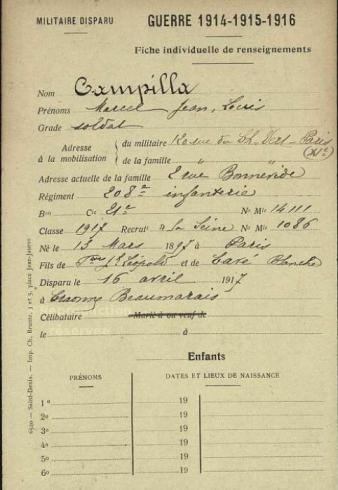 MILITAIRE DISPARU
GUERRE 1914-1915-1916
Fiche individuelle de renseignements
Nom Campilla
Prénoms Marcel Jean, Louis
Grade soldat
Adresse à la mobilisation
du militaire Paris (XIe)
de la famille " "
Adresse actuelle de la famille 2 rue
Régiment 208e infanterie
Bon Cie 21e No Mle 14111
Classe 1917 Recrutt à la Seine No Mle 1086
Né le 13 Mars 1897 à Paris
Fils de et de Blanche
Disparu le 16 avril 1917
à Craonne Beaumarais
Célibataire Marié à ou veuf de
le à
Enfants
PRÉNOMS DATES ET LIEUX DE NAISSANCE
1o 19
2o 19
3o 19
4o 19
5o 19
6o 19
6520 — Saint-Denis. — Imp. Ch. Brunte, 3 et 5, place Jean-Jaurès